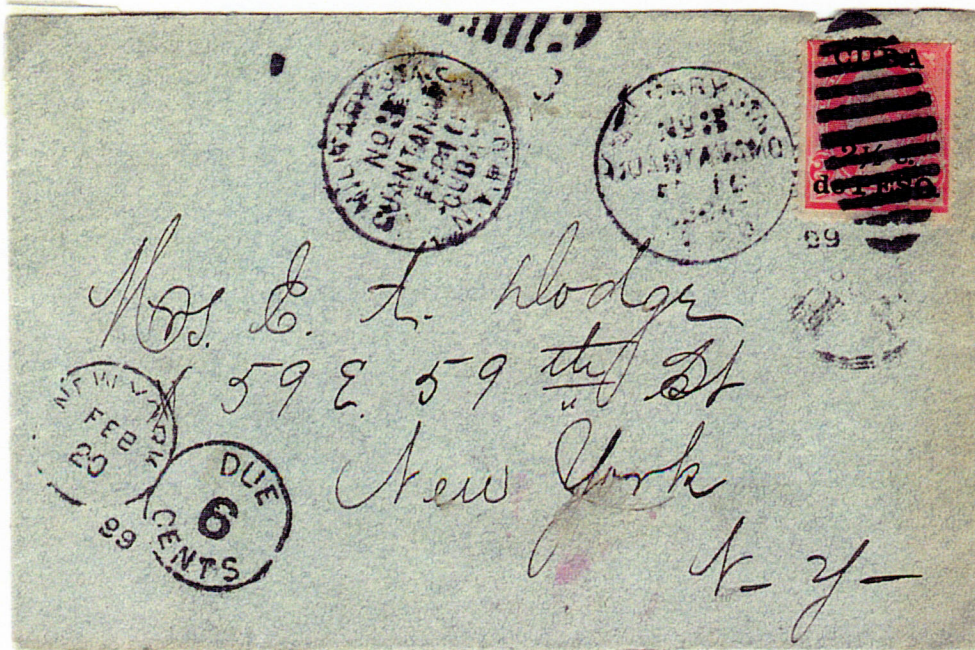 MILITARY
No
GUANTANAMO
FEB 10
CUBA
MILITARY
No
GUANTANAMO
10
CUBA
de PESO
99
Mrs. E. A. Dodge
59 E. 59 th St
New York
N-Y-
NEW YORK
FEB
20
99
DUE
6
CENTS